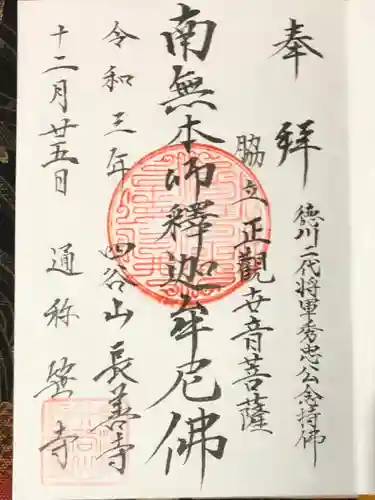 奉拝
徳川二代将軍秀忠公念持佛
脇立正觀世音菩薩
南無本師釋迦牟尼佛
令和三年 四谷山長善寺
十二月廿五日 通称 笹寺